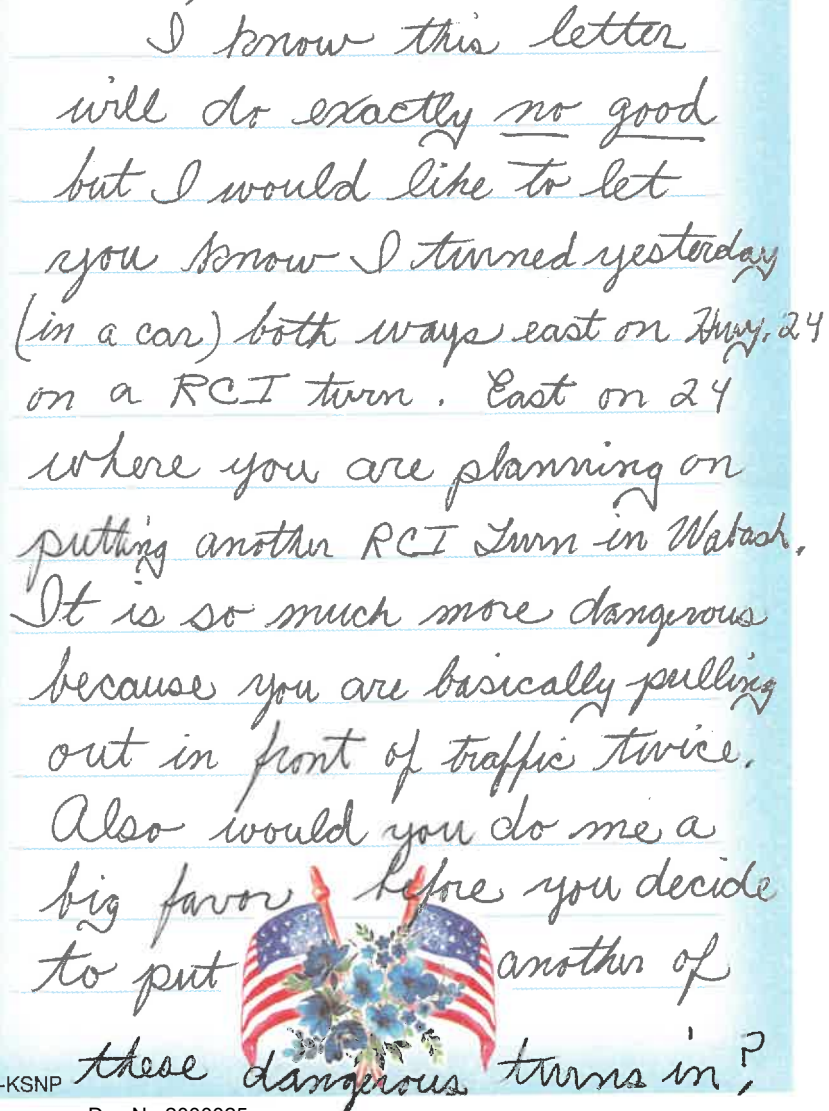 I know this letter
will do exactly no good
but I would like to let
you know I turned yesterday
(in a car) both ways east on Hwy. 24
on a RCI turn. East on 24
where you are planning on
putting another RCI Turn in Wabash.
It is so much more dangerous
because you are basically pulling
out in front of traffic twice.
Also would you do me a
big favor before you decide
to put another of
-KSNP these dangerous turns in?